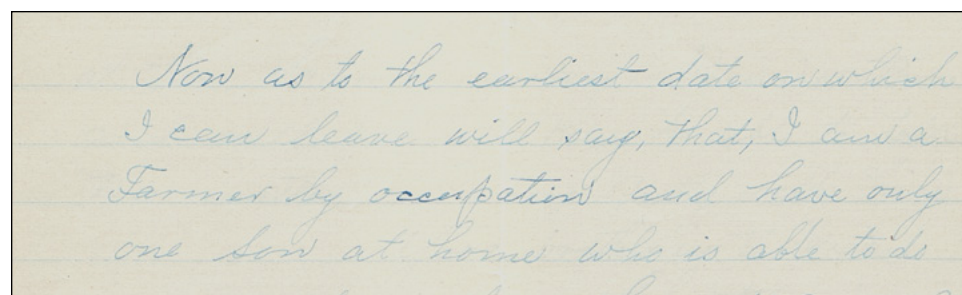 Now as to the earliest date on which
I can leave will say, that, I am a
Farmer by occupation and have only
one son at home who is able to do